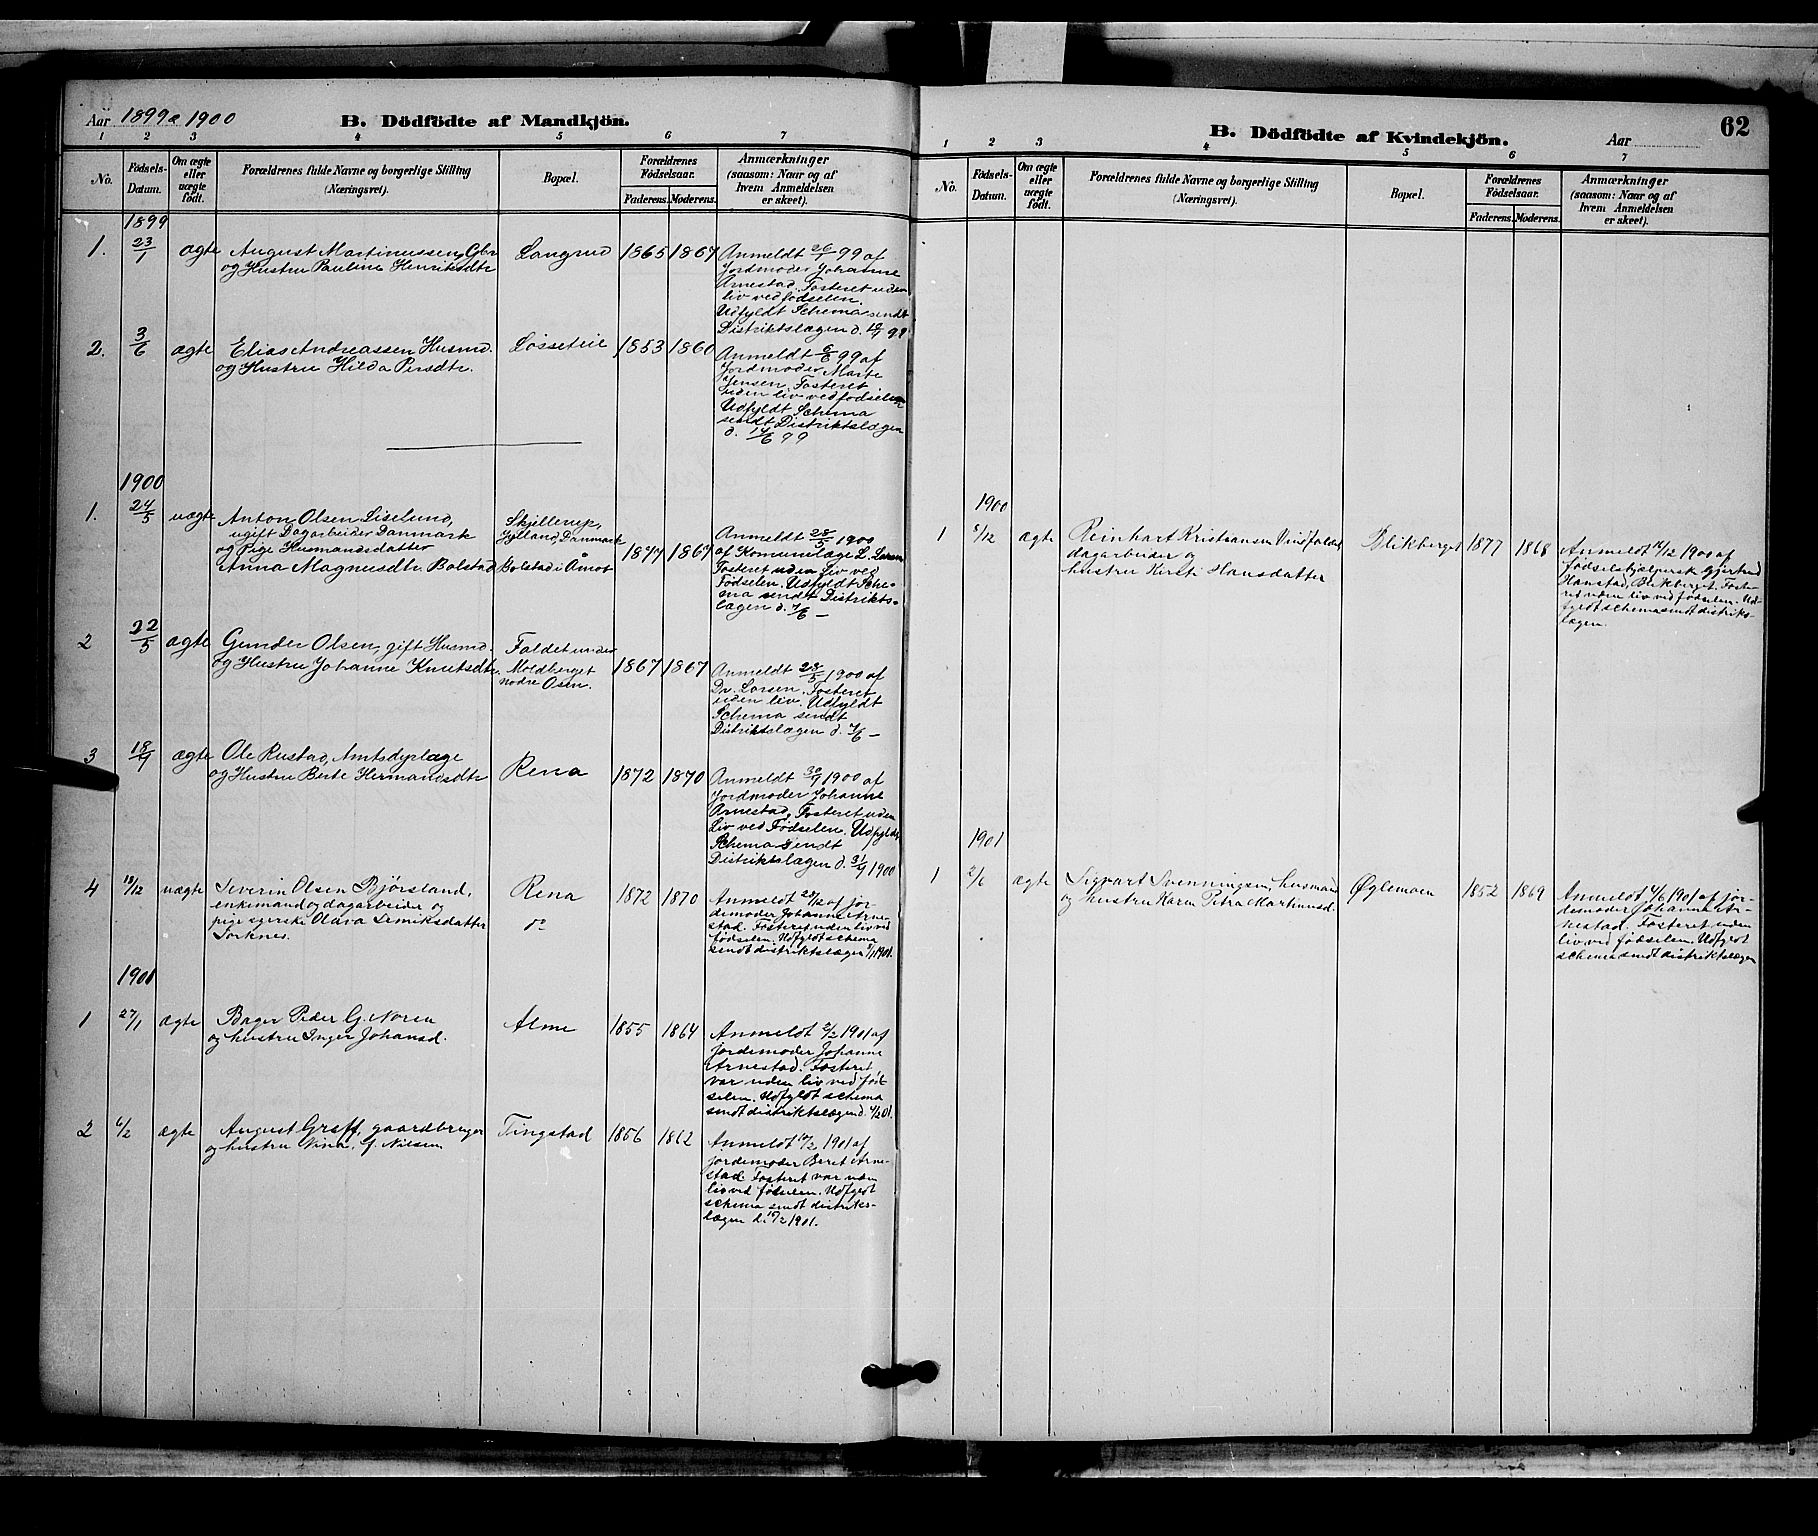 Aar 1899 & 1900
B. Dödfödte af Mandkjön.
1 2 3 4 5 6 7
No.
Födsels-Datum.
Om ægte eller uægte födt.
Forældrenes fulde Navne og borgerlige Stilling (Næringsvei).
Bopæl.
Forældrenes Födselsaar.
Faderens. Moderens.
Anmærkninger (saasom: Naar og af hvem Anmeldelsen er skeet).
1899
1. 23/1 ægte
August Martinussen, Gbr
og Hustru Pauline Henriksdtr
Langrud
1865 1867
Anmeldt 26/1 99 af
Jordmoder Johanne
Arnestad. Fosteret uden
liv ved fødselen.
Udfyldt Schema sendt
Distriktslægen d. 99
2. 3/6 ægte
Elias Andreassen Husmd.
og Hustru Hilda Persdtr.
Losseteie
1853 1860
Anmeldt 6/6 99 af
Jordmoder Marte
Jensen. Fosteret
uden liv ved fødselen
Udfyldt Schema
sendt Distriktslægen
d. 14/6 99
1900
1. 24/5 uægte
Anton Olsen Liselund,
ugift Dagarbeider Danmark
og Pige Husmandsdatter
Anna Magnusdtr. Bolstad
Skjellerup,
Jylland, Danmark
Bolstad i Åmot
1877 1867
Anmeldt 28/5 1900
af Komunelæge L. Larsen
Fosteret uden liv ved
Fødselen. Udfyldt Sche-
ma sendt Distrikts-
lægen d. 7/6 —
2 22/5 ægte
Gunder Olsen, gift Husmd.
og Hustru Johanne Knutsdtr.
Faldet under
Moldberget
nordre Osen.
1867 1867
Anmeldt 28/5 1900 af
Dr. Larsen. Fosteret
uden liv. Udfyldt
Schema sendt
Distriktslægen d. 7/6 —
3 18/9 ægte
Ole Rustad, Amtsdyrlæge
og Hustru Berte Hermandsdtr
Rena
1872 1870
Anmeldt 30/9 1900 af
Jordmoder Johanne
Arnestad, Fosteret uden
Liv ved Fødselen. Udfyldt
Schema sendt
Distriktslægen d. 31/9 1900
4 18/12 uægte
Severin Olsen Bjørsland,
enkemand og dagarbeider og
pige egerske Olava Lemiksdatter
Sorknes.
Rena
do
1872 1870
Anmeldt 27/12 af jor-
demoder Johanne Arne-
stad. Fosteret uden liv ved
fødselen. Udfyldt schema
sendt distriktslægen 1/1 1901.
1901
1 27/1 ægte
Bager Peder G. Noren
og hustru Inger Johansd.
Alme
1855 1864
Anmeldt 2/2 1901 af
jordemoder Johanne
Arnestad. Fosteret
var uden liv ved fød-
selen. Udfyldt schema
sendt distriktslægen d. 4/2 01.
2 6/2 ægte
August Graff, gaardbruger
og hustru Nina G. Nilsen
Tingstad
1856 1862
Anmeldt 1901 af
jordemoder Beret Arne-
stad. Fosteret var uden
liv ved fødselen. Udfyldt
schema sendt distrikts-
lægen d. 1901.
62
B. Dödfödte af Kvindekjön.
Aar
1 2 3 4 5 6 7
No.
Födsels-Datum.
Om ægte eller uægte födt.
Forældrenes fulde Navne og borgerlige Stilling (Næringsvei).
Bopæl.
Forældrenes Födselsaar.
Faderens. Moderens.
Anmærkninger (saasom: Naar og af hvem Anmeldelsen er skeet).
1900
1 5/12 ægte
Reinhart Kristiansen Vindfaldet
dagarbeider og
hustru Kirsti Hansdatter
Blikberget
1877 1868
Anmeldt 1900 af
fødselshjælpersk Gjertrud
Hanstad, Blikberget. Foste-
ret uden liv ved fødselen. Ud-
fyldt schema sendt distrikts-
lægen.
1901
1 2/6 ægte
Sigvart Svenningsen, husmand
og hustru Karen Petra Martinusd.
Øglemoen
1852 1869
Anmeldt 4/6 1901 af jor-
demoder Johanna Ar-
nestad. Fosteret uden
liv ved fødselen. Udfyldt
schema sendt distriktslægen